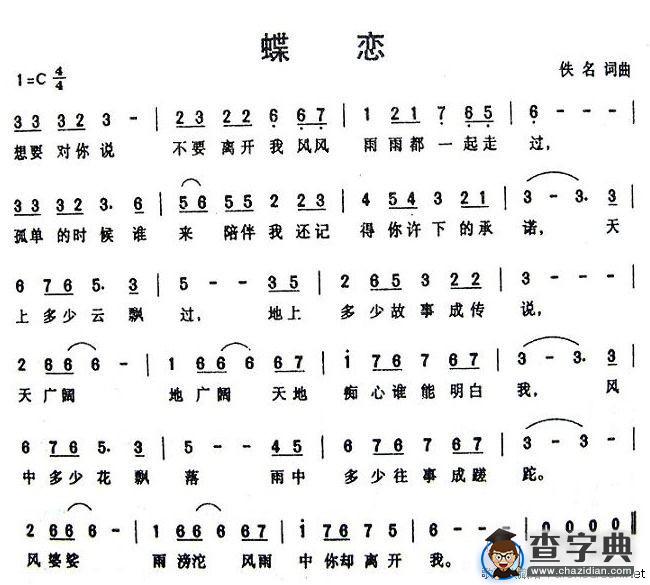 蝶 恋
1=C 4/4
佚名 词曲
3 3 3 2 3 - | 2 3 2 2 6 6 7 | 1 2 1 7 6 5 | 6 - - |
想要对你说 不要离开我风风 雨雨都一起走 过,
3 3 3 2 3. 6 | 5 6 5 5 2 2 3 | 4 5 4 3 2 1 | 3 - 3. 3 |
孤单的时候谁 来 陪伴我还记 得你许下的承 诺, 天
6 7 6 5. 3 | 5 - - 3 5 | 2 6 5 3 2 2 | 3 - - - |
上多少云飘 过, 地上 多少故事成传 说,
2 6 6 6 - | 1 6 6 6 6 7 | i 7 6 7 6 7 | 3 - 3. 3 |
天广阔 地广阔 天地 痴心谁能明白 我, 风
6 7 6 5. 3 | 5 - - 4 5 | 6 7 6 7 6 7 | 3 - 3 - |
中多少花飘 落 雨中 多少往事成蹉 跎。
2 6 6 6 - | 1 6 6 6 6 7 | i 7 6 7 5 | 6 - - - | 0 0 0 0 ‖
风婆娑 雨滂沱 风雨 中你却离开 我。
查字典
www.chazidian.com